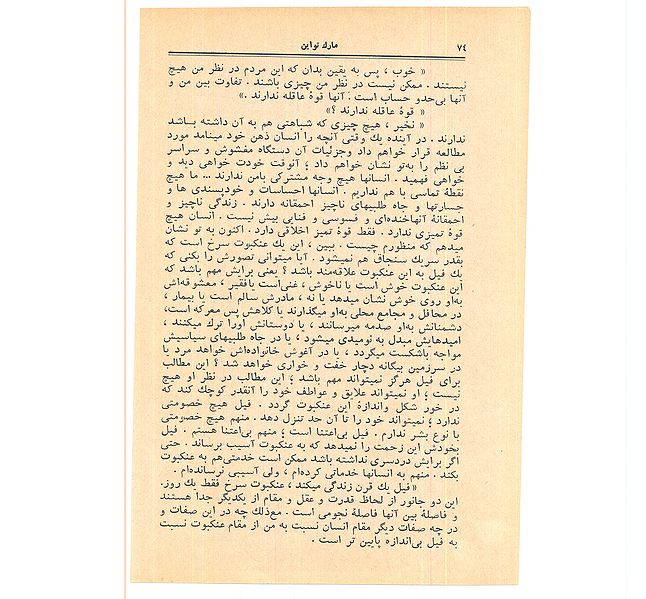 ٧٤ مارك تواین
« خوب ، پس به یقین بدان که این مردم در نظر من هیچ
نیستند . ممکن نیست در نظر من چیزی باشند . تفاوت بین من و
آنها بی‌حدو حساب است . آنها قوهٔ عاقله ندارند .»
« قوهٔ عاقله ندارند ؟»
« نخیر ، هیچ چیزی که شباهتی هم به آن داشته بـاشد
ندارند . در آینده یك وقتی آنچه را انسان ذهن خود مینامد مورد
مطالعه قرار خواهم داد وجزئیات آن دستگاه مغشوش و سراسر
بی نظم را به‌تو نشان خواهم داد ؛ آنوقت خودت خواهی دید و
خواهی فهمید . انسانها هیچ وجه مشترکی بامن ندارند ... ما هیچ
نقطهٔ تماسی با هم نداریم . انسانها احساسات و خودپسندی ها و
جسارتها و جاه طلبیهای ناچیز احمقانه دارند . زندگی ناچیز و
احمقانهٔ آنهاخنده‌ای و فسوسی و فنایی بیش نیست . انسان هیچ
قوهٔ تمیزی ندارد . فقط قوهٔ تمیز اخلاقی دارد . اکنون به تو نشان
میدهم که منظورم چیست . ببین ، این یك عنکبوت سرخ است که
بقدر سریك سنجاق هم نمیشود . آیا میتوانی تصورش را بکنی که
یك فیل به این عنکبوت علاقه‌مند باشد ؟ یعنی برایش مهم باشد که
این عنکبوت خوش است یا ناخوش ، غنی‌است یافقیر ، معشوقه‌اش
به‌او روی خوش نشان میدهد یا نه ، مادرش سالم است یا بیمار ،
در محافل و مجامع محلی به‌او میگذارند یا کلاهش پس معرکه‌است،
دشمنانش به‌او صدمه میرسانند ، یا دوستانش اورا ترك میکنند ،
امیدهایش مبدل به نومیدی میشود ، یا در جاه طلبیهای سیاسیش
مواجه باشکست میگردد ، یا در آغوش خانواده‌اش خواهد مرد یا
در سرزمین بیگانه دچار خفّت و خواری خواهد شد ؟ این مطالب
برای فیل هرگز نمیتواند مهم باشد ؛ این مطالب در نظر او هیچ
نیست ؛ او نمیتواند علایق و عواطف خود را آنقدر کوچك کند که
در خور شکل واندازهٔ این عنکبوت گردد . فیل هیچ خصومتی
ندارد ؛ نمیتواند خود را تا آن حد تنزل دهد . منهم هیچ خصومتی
با نوع بشر ندارم . فیل بی‌اعتنا است ؛ منهم بی‌اعتنا هستم . فیل
بخودش این زحمت را نمیدهد که به عنکبوت آسیب برساند . حتی
اگر برایش دردسری نداشته باشد ممکن است خدمتی‌هم به عنکبوت
بکند . منهم به انسانها خدماتی کرده‌ام ، ولی آسیبی نرسانده‌ام .
«فیل یك قرن زندگی میکند ، عنکبوت سرخ فقط یك روز.
این دو جانور از لحاظ قدرت و عقل و مقام از یکدیگر جدا هستند
و فاصلهٔ بین آنها فاصلهٔ نجومی است . مع‌ذلك چه در این صفات و
در چه صفات دیگر مقام انسان نسبت به من از مقام عنکبوت نسبت
به فیل بی‌اندازه پایین تر است .